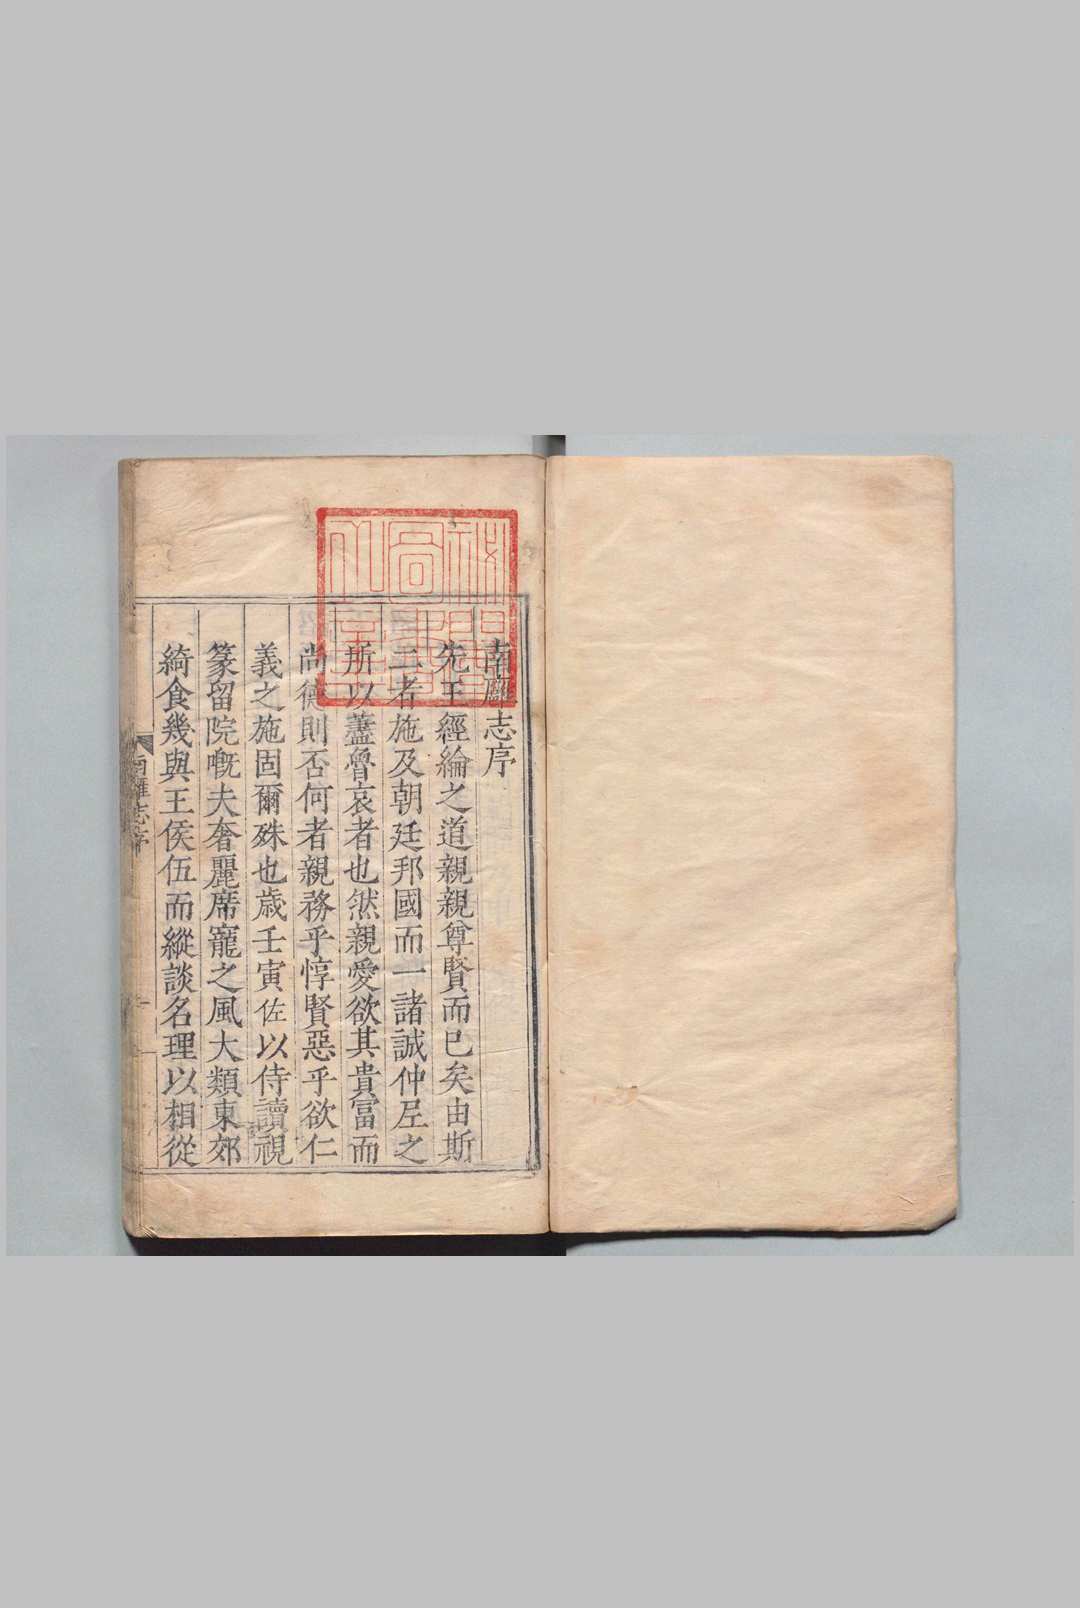 南廱志序
先王經綸之道親親尊賢而已矣由斯
二者施及朝廷邦國而一諸誠仲尼之
所以蓋魯哀者也然親愛欲其貴富而
尚德則否何者親務乎惇賢惡乎欲仁
義之施固爾殊也歲壬寅佐以侍讀視
篆留院嘅夫奢麗席寵之風大類東郊
綺食幾與王侯伍而縱談名理以相從
南雝志序